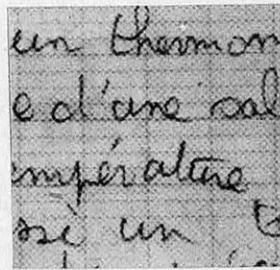 un thermom
e d'une sal
mpérature
ssi un t